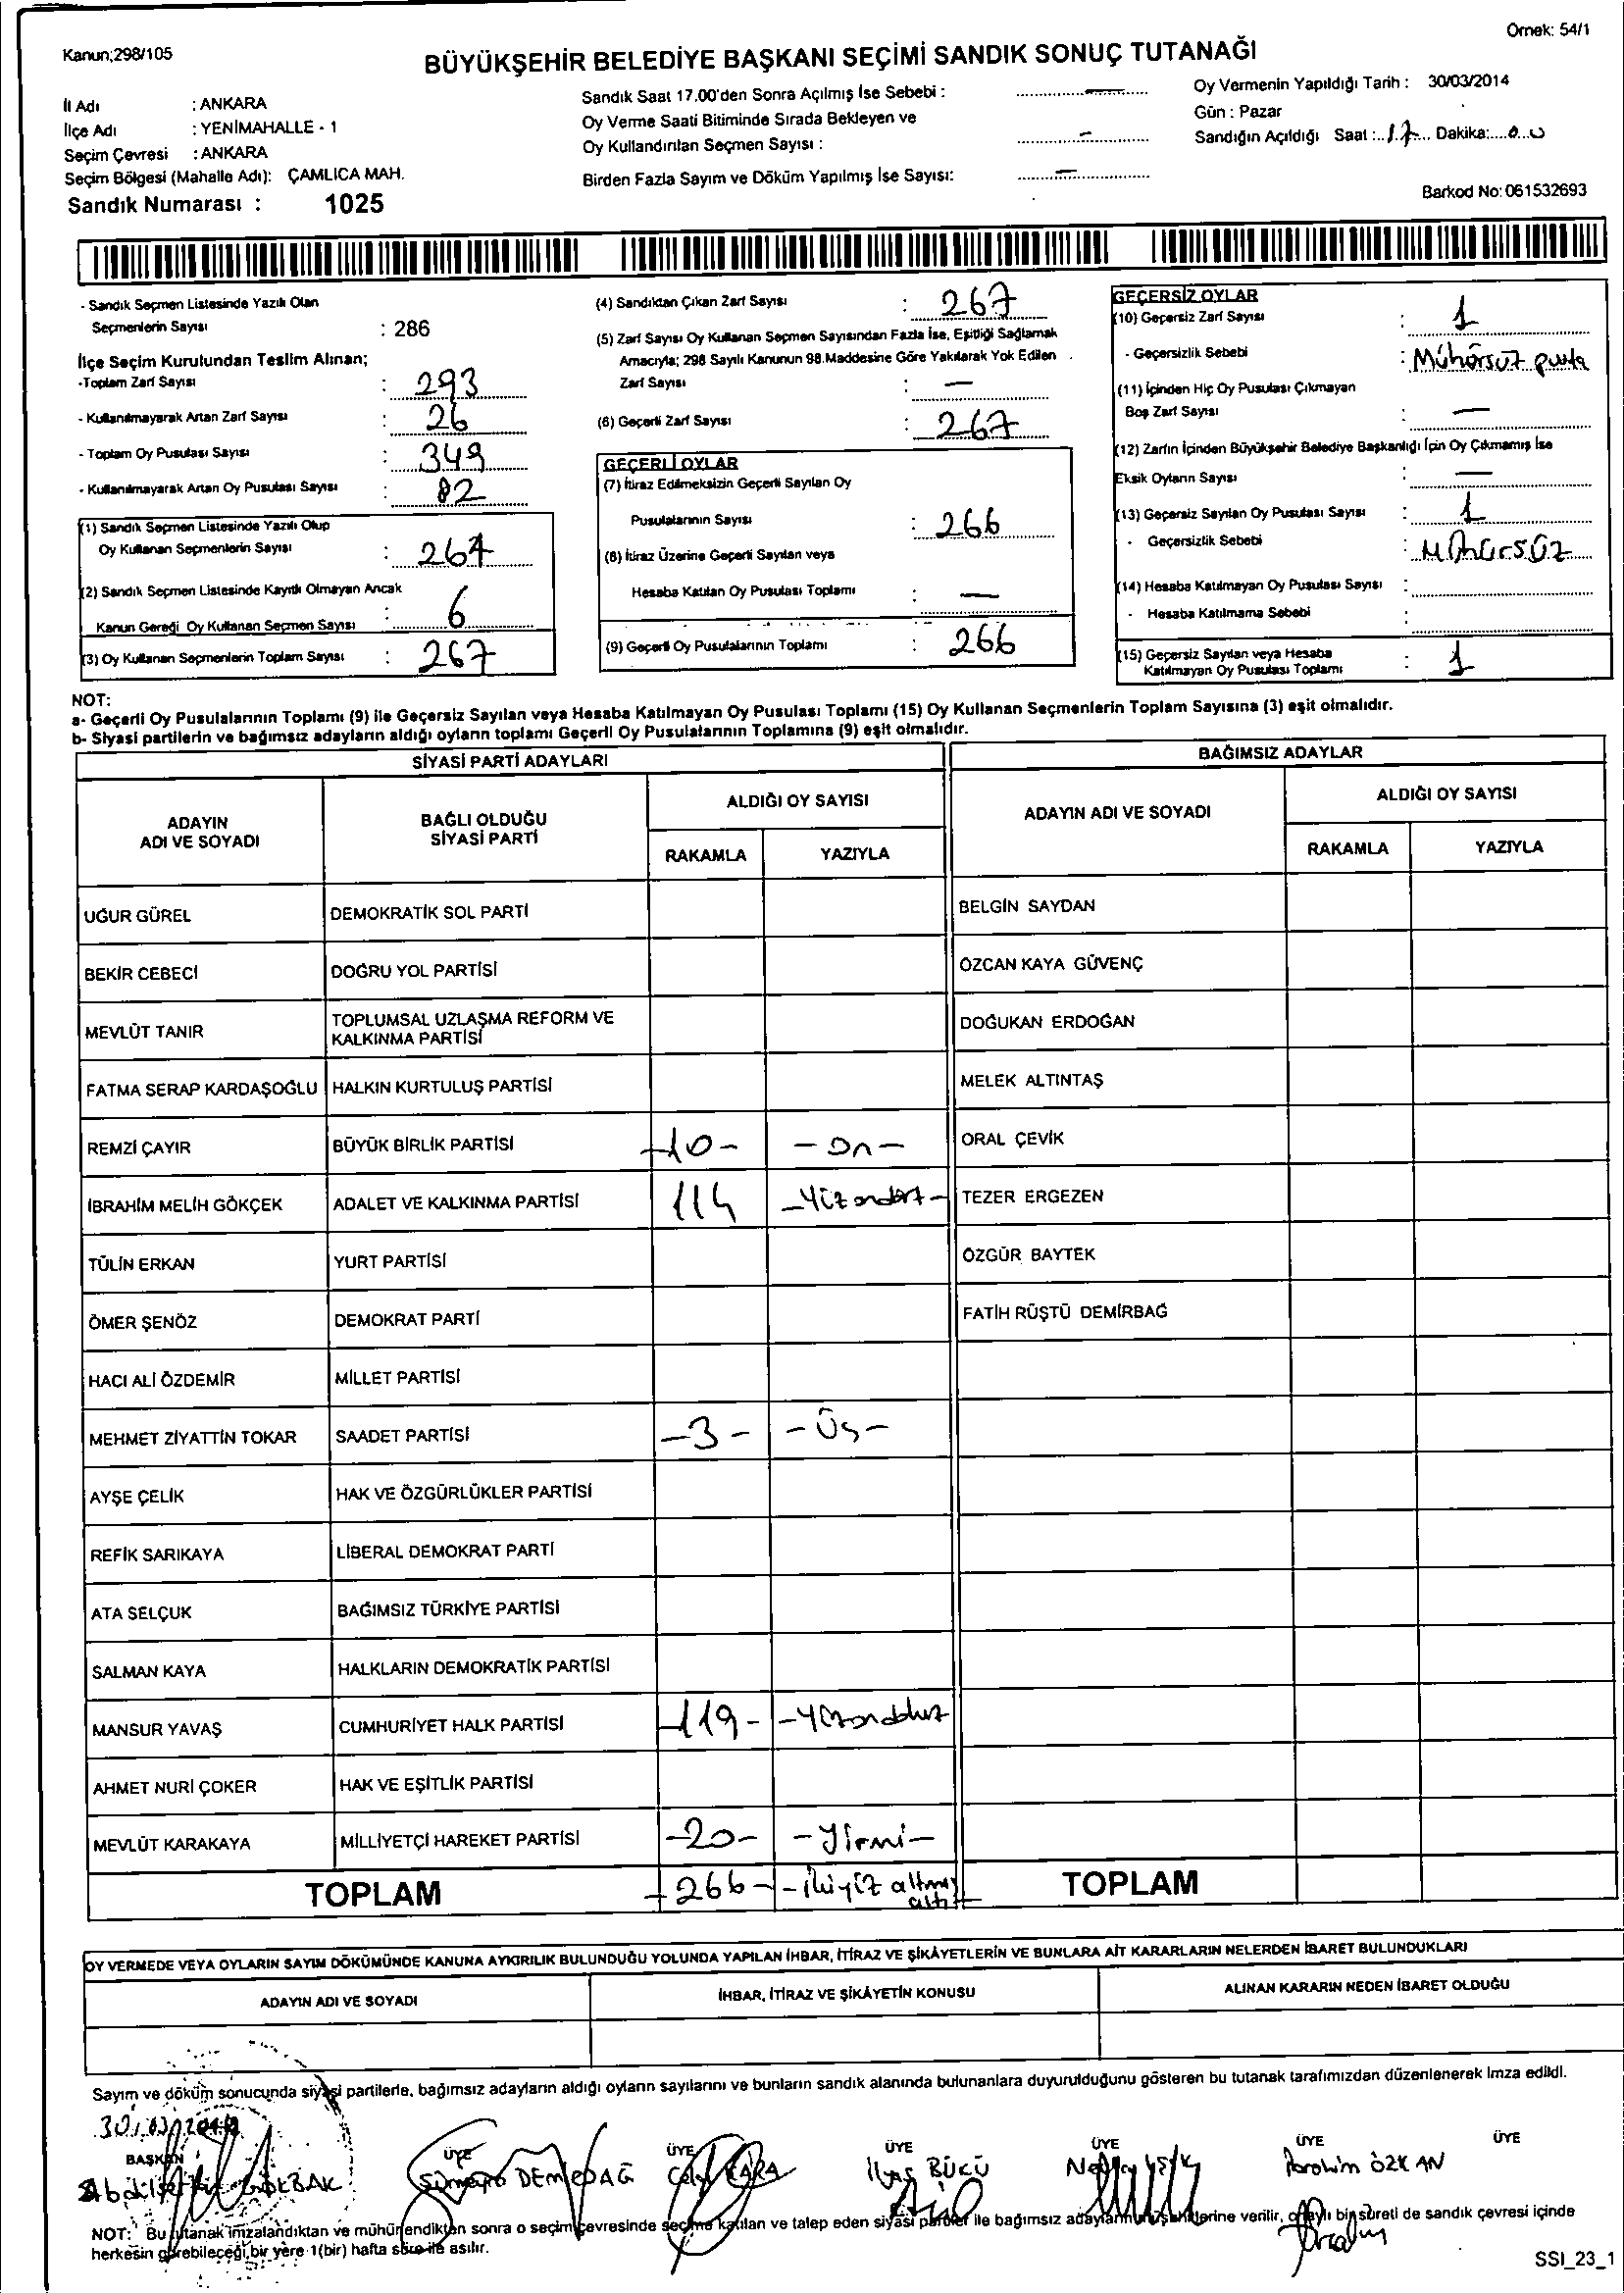 Kanun;298/105
Örnek: 54/1
BÜYÜKŞEHİR BELEDİYE BAŞKANI SEÇİMİ SANDIK SONUÇ TUTANAĞI
İl Adı : ANKARA
İlçe Adı : YENİMAHALLE - 1
Seçim Çevresi : ANKARA
Seçim Bölgesi (Mahalle Adı): ÇAMLICA MAH.
Sandık Numarası : 1025
Sandık Saat 17.00'den Sonra Açılmış İse Sebebi : —
Oy Verme Saati Bitiminde Sırada Bekleyen ve
Oy Kullandırılan Seçmen Sayısı : —
Birden Fazla Sayım ve Döküm Yapılmış İse Sayısı: —
Oy Vermenin Yapıldığı Tarih : 30/03/2014
Gün : Pazar
Sandığın Açıldığı Saat :..17... Dakika:....00
Barkod No: 061532693
- Sandık Seçmen Listesinde Yazılı Olan
Seçmenlerin Sayısı : 286
İlçe Seçim Kurulundan Teslim Alınan;
-Toplam Zarf Sayısı : 293
- Kullanılmayarak Artan Zarf Sayısı : 26
- Toplam Oy Pusulası Sayısı : 349
- Kullanılmayarak Artan Oy Pusulası Sayısı : 82
(1) Sandık Seçmen Listesinde Yazılı Olup
Oy Kullanan Seçmenlerin Sayısı :
(2) Sandık Seçmen Listesinde Kayıtlı Olmayan Ancak
Kanun Gereği Oy Kullanan Seçmen Sayısı : 6
(3) Oy Kullanan Seçmenlerin Toplam Sayısı : 267
(4) Sandıktan Çıkan Zarf Sayısı : 267
(5) Zarf Sayısı Oy Kullanan Seçmen Sayısından Fazla İse, Eşitliği Sağlamak
Amacıyla; 298 Sayılı Kanunun 98.Maddesine Göre Yakılarak Yok Edilen
Zarf Sayısı : —
(6) Geçerli Zarf Sayısı : 267
GEÇERLİ OYLAR
(7) İtiraz Edilmeksizin Geçerli Sayılan Oy
Pusulalarının Sayısı : 266
(8) İtiraz Üzerine Geçerli Sayılan veya
Hesaba Katılan Oy Pusulası Toplamı : —
(9) Geçerli Oy Pusulalarının Toplamı : 266
GEÇERSİZ OYLAR
(10) Geçersiz Zarf Sayısı : 1
- Geçersizlik Sebebi : Mühürsüz pusla
(11) İçinden Hiç Oy Pusulası Çıkmayan
Boş Zarf Sayısı : —
(12) Zarfın İçinden Büyükşehir Belediye Başkanlığı İçin Oy Çıkmamış İse
Eksik Oyların Sayısı : —
(13) Geçersiz Sayılan Oy Pusulası Sayısı : 1
- Geçersizlik Sebebi : MÜHÜRSÜZ
(14) Hesaba Katılmayan Oy Pusulası Sayısı :
- Hesaba Katılmama Sebebi :
(15) Geçersiz Sayılan veya Hesaba
Katılmayan Oy Pusulası Toplamı : 1
NOT:
a- Geçerli Oy Pusulalarının Toplamı (9) ile Geçersiz Sayılan veya Hesaba Katılmayan Oy Pusulası Toplamı (15) Oy Kullanan Seçmenlerin Toplam Sayısına (3) eşit olmalıdır.
b- Siyasi partilerin ve bağımsız adayların aldığı oyların toplamı Geçerli Oy Pusulalarının Toplamına (9) eşit olmalıdır.
SİYASİ PARTİ ADAYLARI
ADAYIN
ADI VE SOYADI
BAĞLI OLDUĞU
SİYASİ PARTİ
ALDIĞI OY SAYISI
RAKAMLA YAZIYLA
UĞUR GÜREL DEMOKRATİK SOL PARTİ
BEKİR CEBECİ DOĞRU YOL PARTİSİ
MEVLÜT TANIR TOPLUMSAL UZLAŞMA REFORM VE
KALKINMA PARTİSİ
FATMA SERAP KARDAŞOĞLU HALKIN KURTULUŞ PARTİSİ
REMZİ ÇAYIR BÜYÜK BİRLİK PARTİSİ -10- - On -
İBRAHİM MELİH GÖKÇEK ADALET VE KALKINMA PARTİSİ 114 - Yüzondört -
TÜLİN ERKAN YURT PARTİSİ
ÖMER ŞENÖZ DEMOKRAT PARTİ
HACI ALİ ÖZDEMİR MİLLET PARTİSİ
MEHMET ZİYATTİN TOKAR SAADET PARTİSİ -3- - Üç -
AYŞE ÇELİK HAK VE ÖZGÜRLÜKLER PARTİSİ
REFİK SARIKAYA LİBERAL DEMOKRAT PARTİ
ATA SELÇUK BAĞIMSIZ TÜRKİYE PARTİSİ
SALMAN KAYA HALKLARIN DEMOKRATİK PARTİSİ
MANSUR YAVAŞ CUMHURİYET HALK PARTİSİ -119- - Yüzondokuz
AHMET NURİ ÇOKER HAK VE EŞİTLİK PARTİSİ
MEVLÜT KARAKAYA MİLLİYETÇİ HAREKET PARTİSİ -20- - Yirmi -
TOPLAM -266- - ikiyüz altmış
altı -
BAĞIMSIZ ADAYLAR
ADAYIN ADI VE SOYADI
ALDIĞI OY SAYISI
RAKAMLA YAZIYLA
BELGİN SAYDAN
ÖZCAN KAYA GÜVENÇ
DOĞUKAN ERDOĞAN
MELEK ALTINTAŞ
ORAL ÇEVİK
TEZER ERGEZEN
ÖZGÜR BAYTEK
FATİH RÜŞTÜ DEMİRBAĞ
TOPLAM
OY VERMEDE VEYA OYLARIN SAYIM DÖKÜMÜNDE KANUNA AYKIRILIK BULUNDUĞU YOLUNDA YAPILAN İHBAR, İTİRAZ VE ŞİKÂYETLERİN VE BUNLARA AİT KARARLARIN NELERDEN İBARET BULUNDUKLARI
ADAYIN ADI VE SOYADI İHBAR, İTİRAZ VE ŞİKÂYETİN KONUSU ALINAN KARARIN NEDEN İBARET OLDUĞU
Sayım ve döküm sonucunda siyasi partilerle, bağımsız adayların aldığı oyların sayılarını ve bunların sandık alanında bulunanlara duyurulduğunu gösteren bu tutanak tarafımızdan düzenlenerek imza edildi.
30/03/2014
BAŞKAN ÜYE ÜYE ÜYE ÜYE ÜYE ÜYE
GÖKBAK DEMİRDAĞ KARA İlyas BÜKÜ İbrahim ÖZKAN
NOT: Bu tutanak imzalandıktan ve mühürlendikten sonra o seçim çevresinde seçime katılan ve talep eden siyasi partiler ile bağımsız adayların müşahitlerine verilir, onaylı bir sureti de sandık çevresi içinde
herkesin görebileceği bir yere 1(bir) hafta süre ile asılır.
SSI_23_1